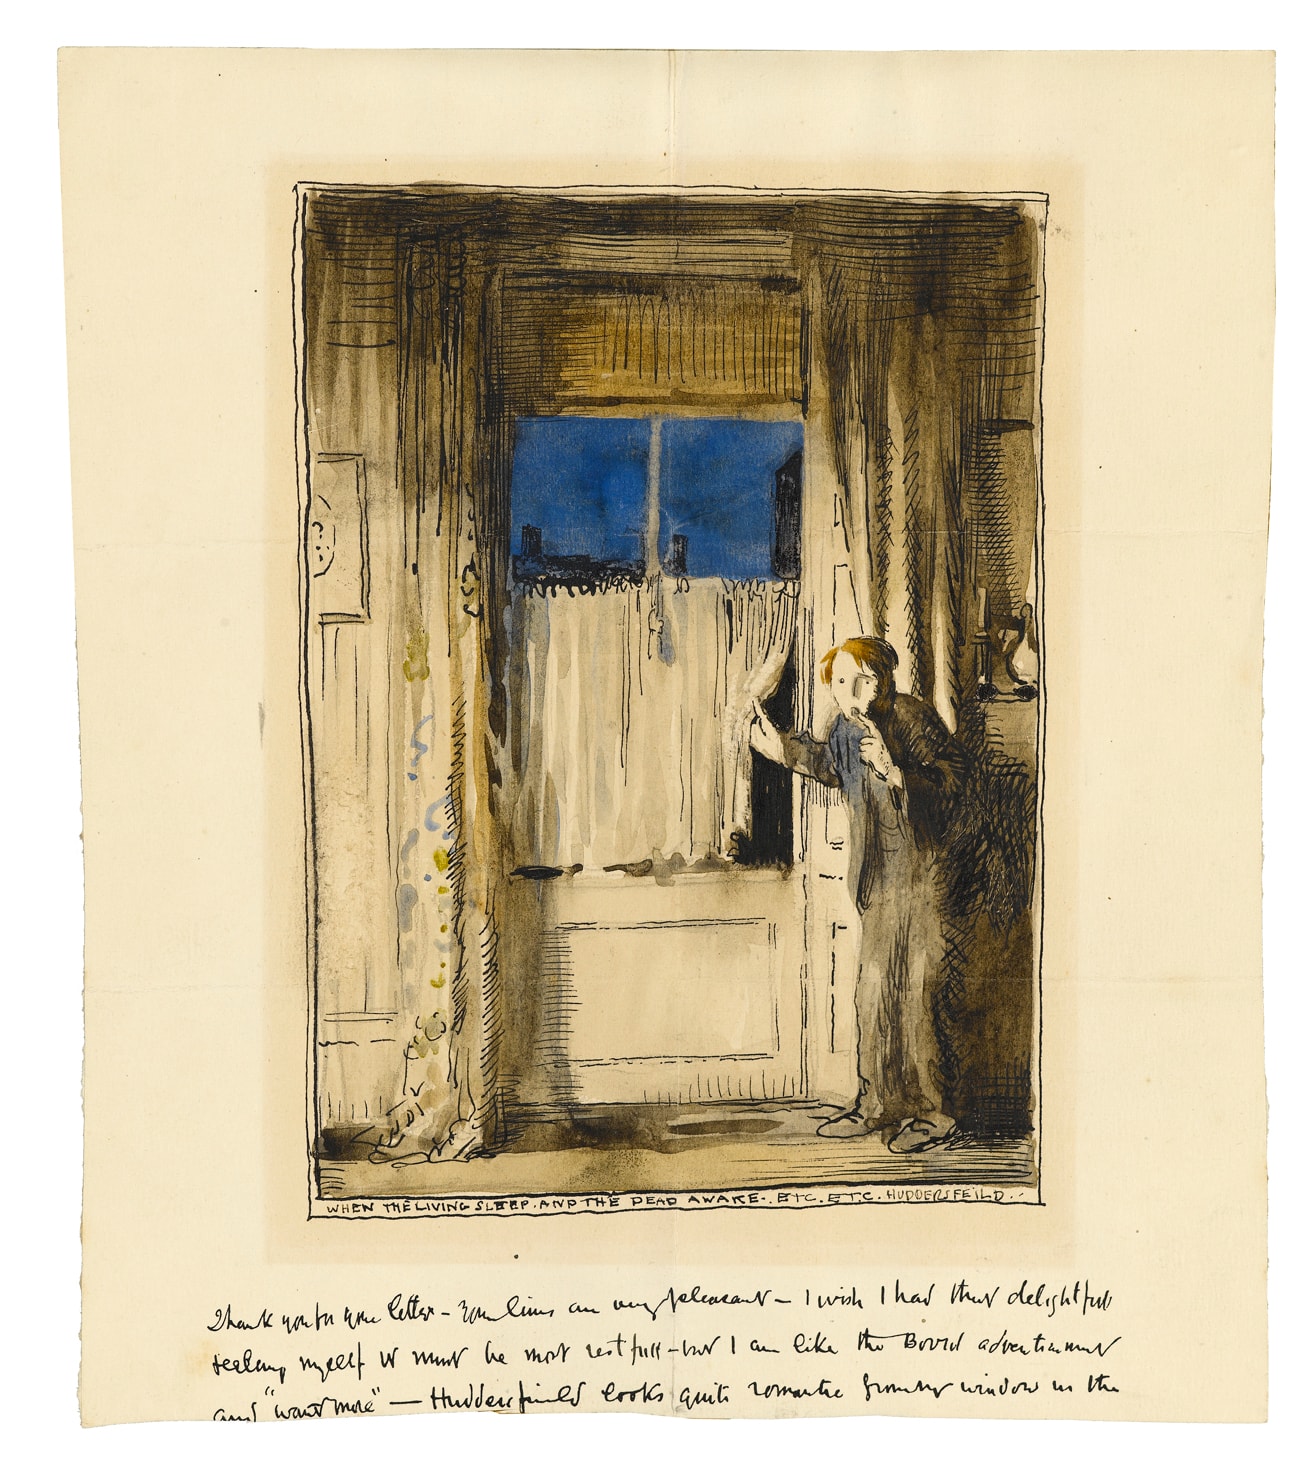 WHEN THE LIVING SLEEP. AND THE DEAD AWAKE-. ETC. ETC. HUDDERSFEILD..-
Thank you for your letter – your lines are very pleasant – I wish I had that delightfull
feeling myself it must be most restfull – but I am like the Bovril advertisement
and "want more" — Huddersfield looks quite romantic from my window in the